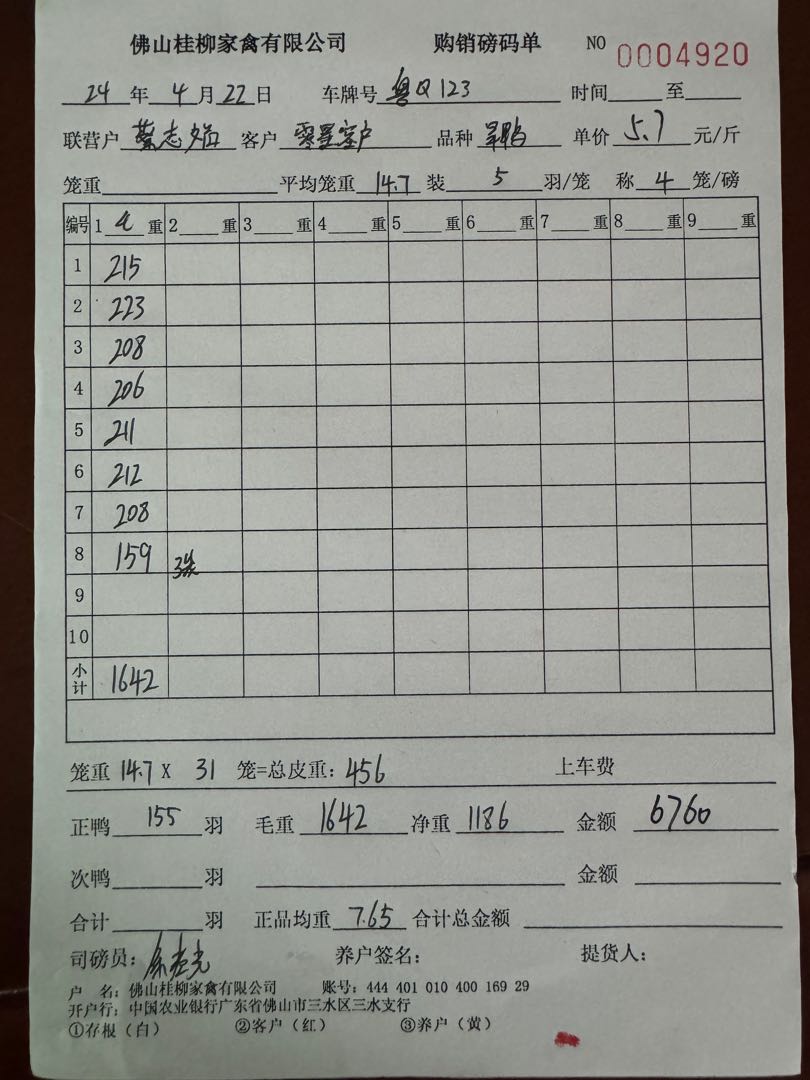 佛山桂柳家禽有限公司 购销磅码单 NO 0004920
24 年 4 月 22 日 车牌号 粤Q123 时间 至
联营户 蔡志 客户 零星客户 品种 单价 5.7 元/斤
笼重 平均笼重 14.7 装 5 羽/笼 称 4 笼/磅
编号 1 重 2 重 3 重 4 重 5 重 6 重 7 重 8 重 9 重
1 215
2 223
3 208
4 206
5 211
6 212
7 208
8 159
9
10
小计 1642
笼重 14.7 X 31 笼=总皮重: 456 上车费
正鸭 155 羽 毛重 1642 净重 1186 金额 6760
次鸭 羽 金额
合计 羽 正品均重 7.65 合计总金额
司磅员: 养户签名: 提货人:
户 名: 佛山桂柳家禽有限公司 账号: 444 401 010 400 169 29
开户行: 中国农业银行广东省佛山市三水区三水支行
①存根（白） ②客户（红） ③养户（黄）